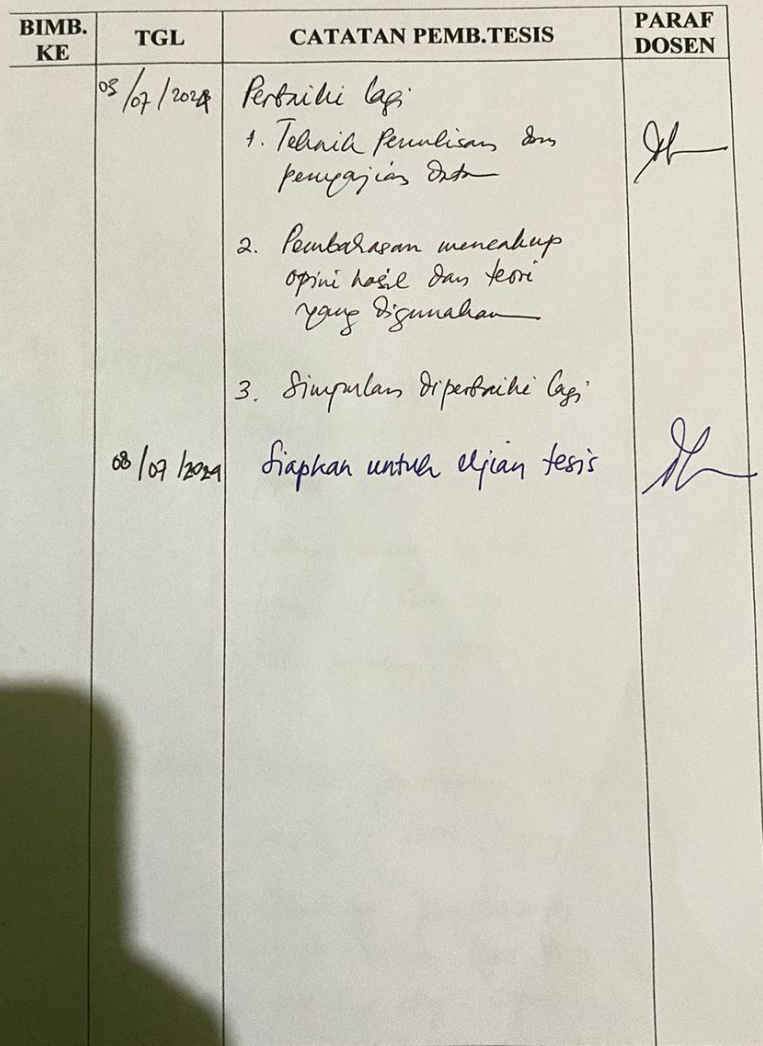 BIMB. KE TGL CATATAN PEMB.TESIS PARAF DOSEN
05/07/2024 Perbaiki lagi
1. Teknik Penulisan dan
penyajian data
2. Pembahasan mencakup
opini hasil dan teori
yang digunakan
3. Simpulan diperbaiki lagi
08/07/2024 Siapkan untuk Ujian tesis